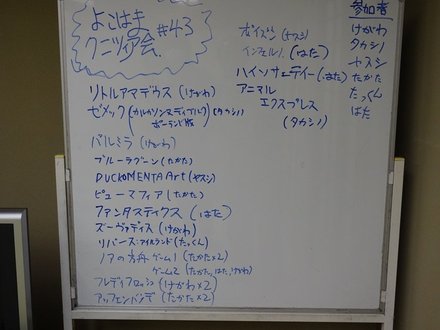 よこはま
クニツィア会 #43
リトルアマデウス (けがわ)
ゼメック (カルカソンヌディプル ポーランド版) (タカシノ)
パルミラ (けがわ)
ブルーラグーン (たかた)
DUCKOMENTA Art (ヤスシ)
ピューマフィア (たかた)
ファンタスティクス (はた)
ズーヴァディス (けがわ)
リバース:アイルランド (たっくん)
ノアの方舟 ゲーム1 (たかた×2)
ゲーム2 (たかた,はた,けがわ)
フレディフロッシュ (けがわ×2)
アップエンバンデ (たかた×2)
ポイズン (ヤスシ)
インフェルノ (はた)
ハイソサェティー (はた)
アニマル
エクスプレス
(タカシノ)
参加者
けがわ
タカシノ
ヤスシ
たかた
たっくん
はた